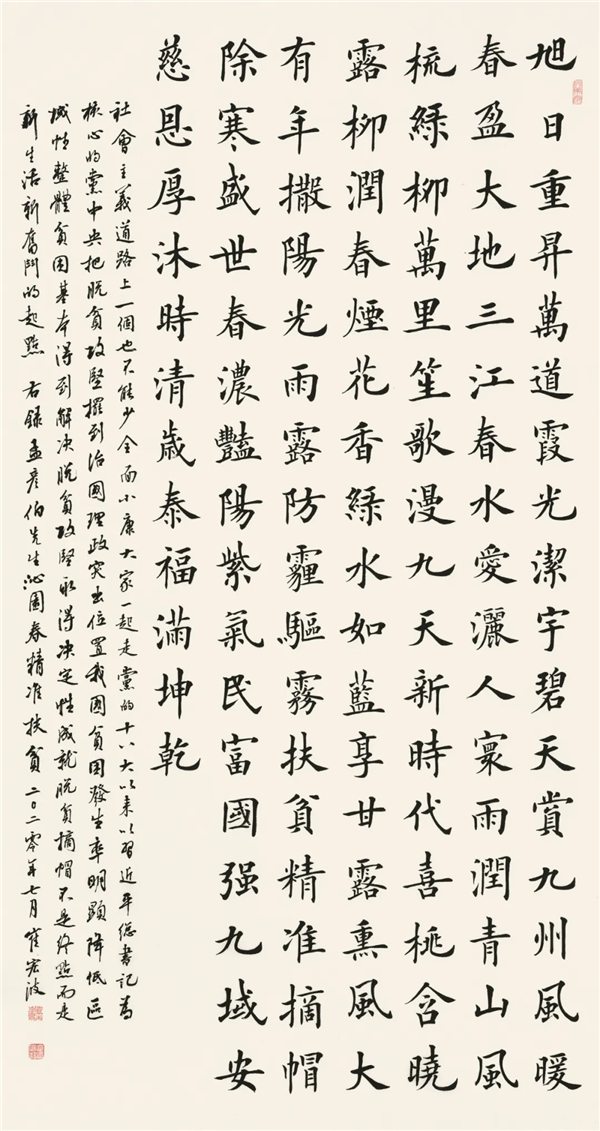 旭日重昇萬道霞光潔宇碧天賞九州風暖
春盈大地三江春水愛灑人寰雨潤青山風
梳綠柳萬里笙歌漫九天新時代喜桃含曉
露柳潤春煙花香綠水如藍享甘露熏風大
有年撒陽光雨露防霾驅霧扶貧精准摘帽
除寒盛世春濃豔陽紫氣民富國强九域安
慈恩厚沐時清歲泰福滿坤乾
社會主義道路上一個也不能少全面小康大家一起走黨的十八大以来以習近平總書記為
核心的黨中央把脱貧攻堅擺到治國理政突出位置我國貧困發生率明顯降低區
域性整體貧困基本得到解决脱貧攻堅取得决定性成就脱貧摘帽不是终點而是
新生活新奮鬥的起點 右錄孟彦伯先生沁園春精准扶貧 二〇二零年七月 崔宏波